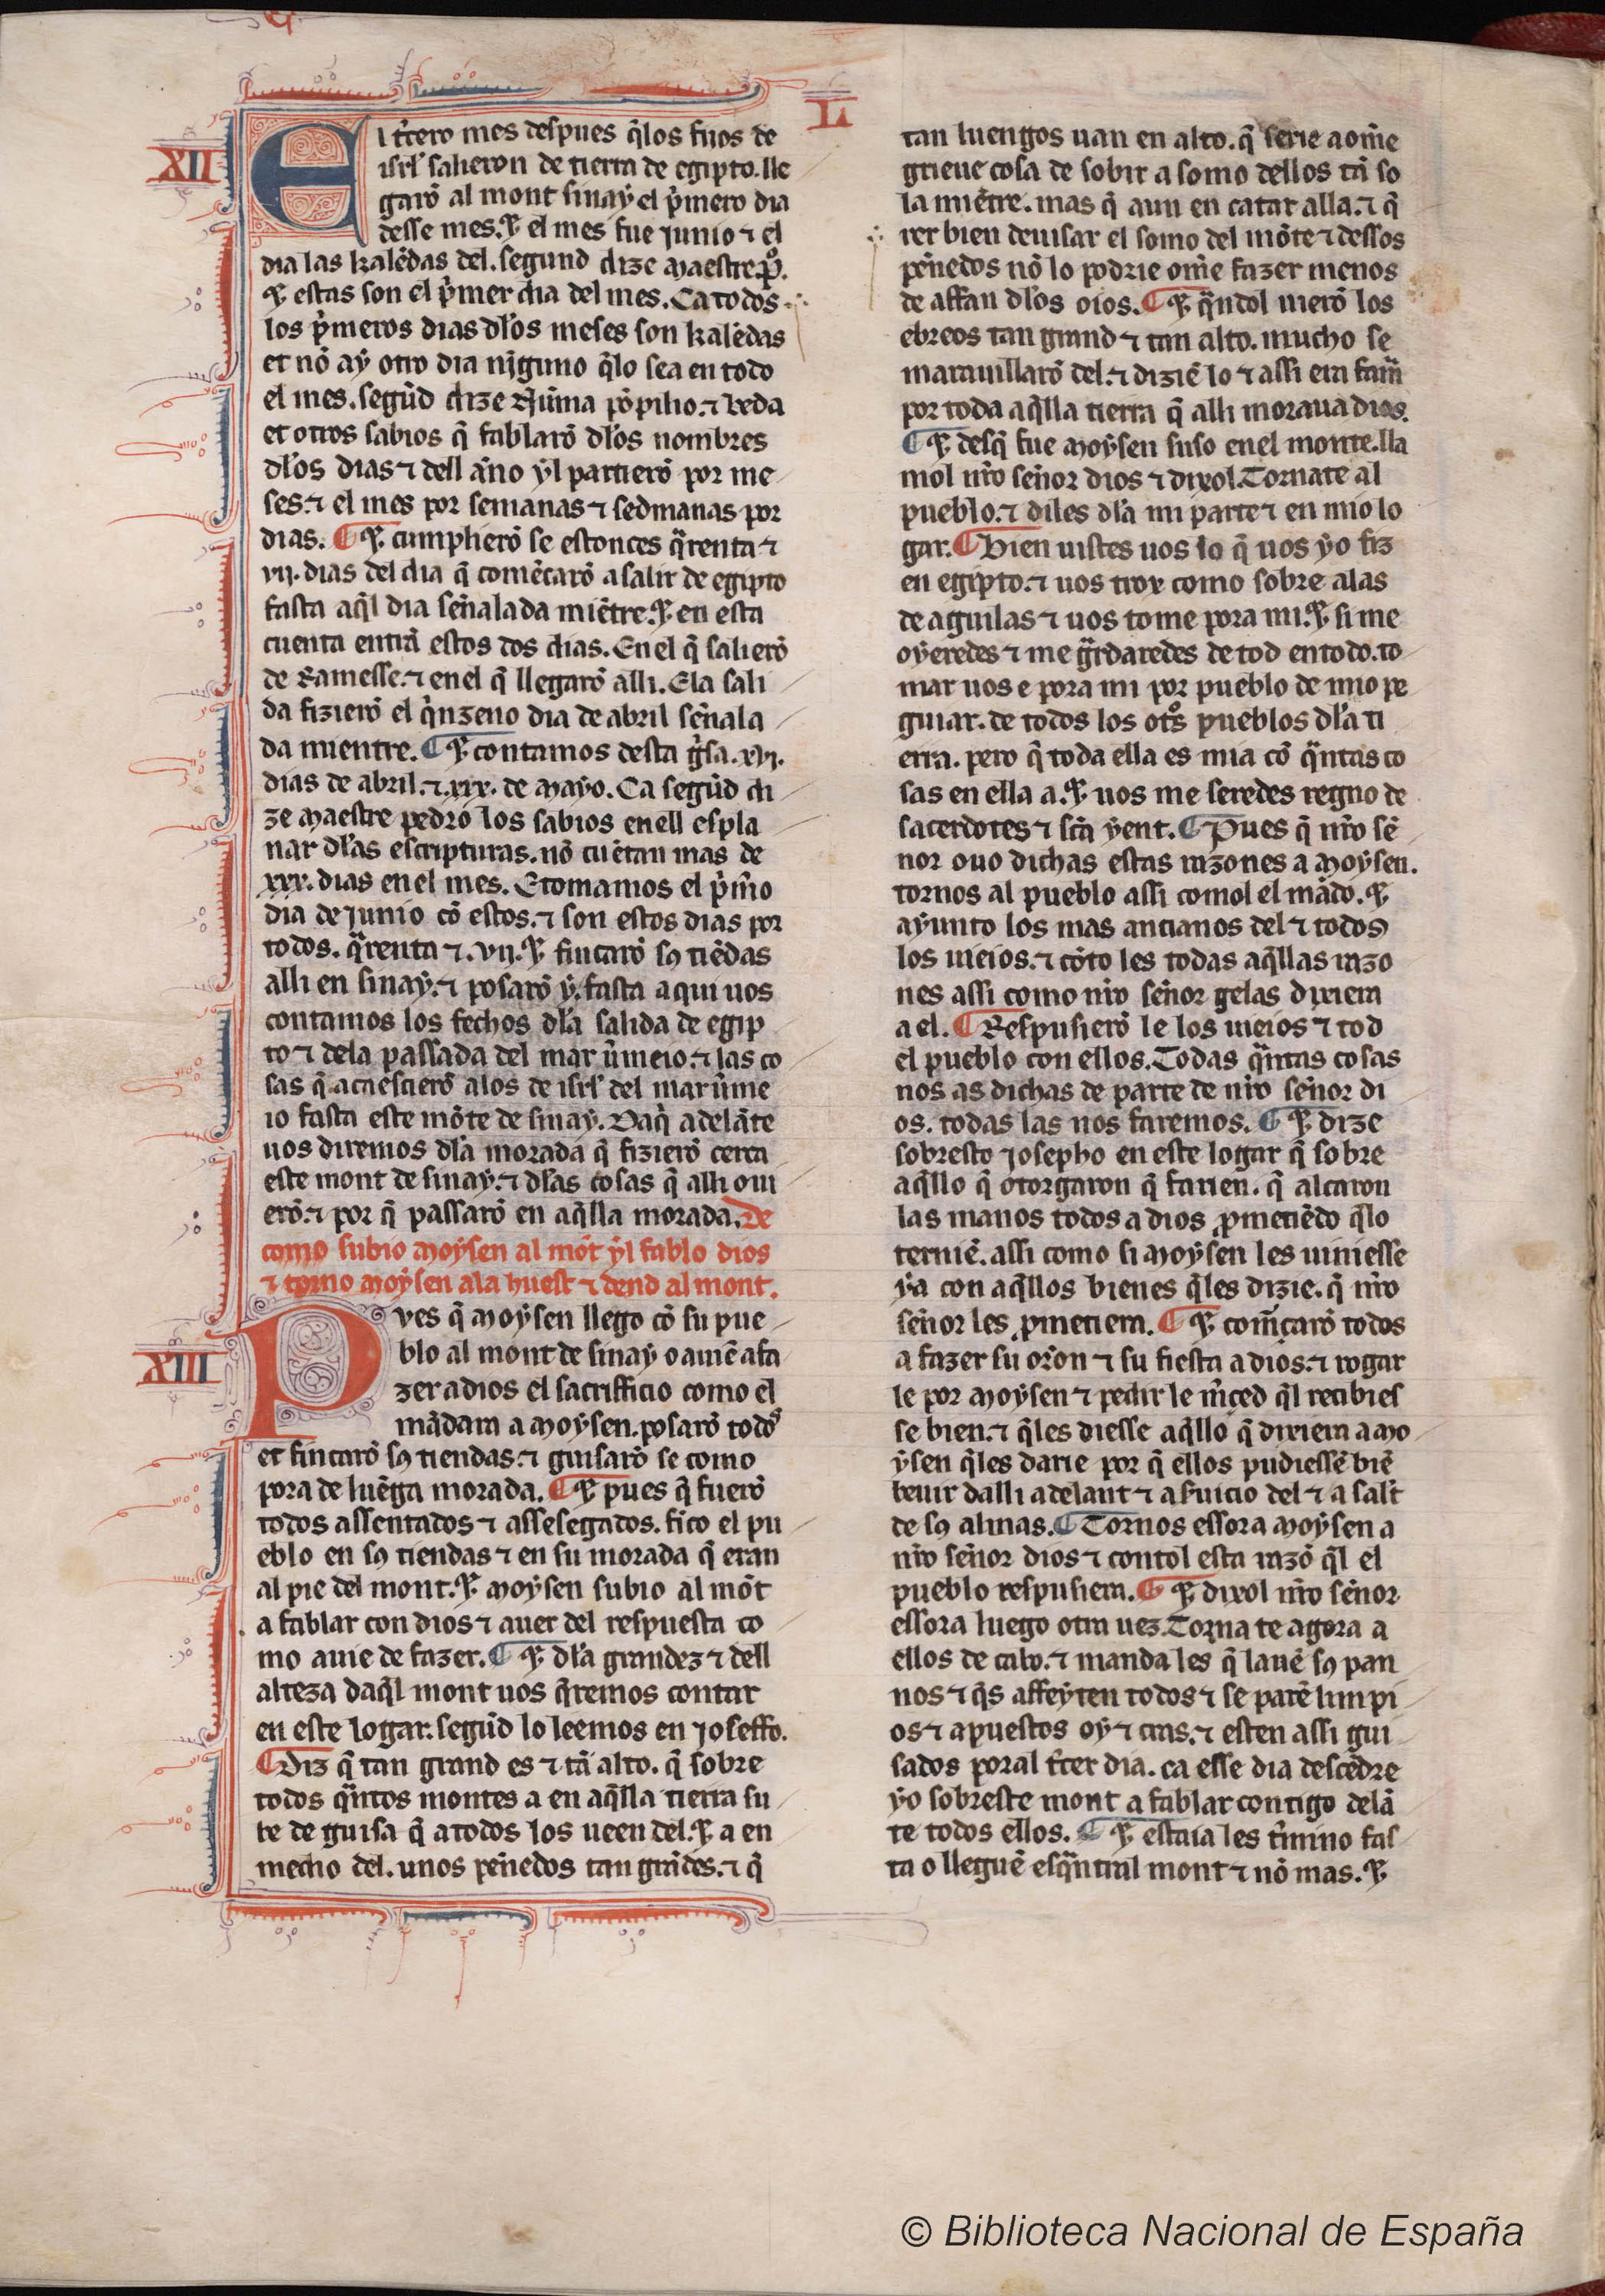 L
XII
El t̃cero mes despues q̃los fijos de
isrl' salieron de tierra de egipto. lle
garõ al mont sinaẏ el p̃mero dia
desse mes. ⁊ el mes fue junio ⁊ el
dia las kalẽdas del. segund dize maestre .p̊.
⁊ estas son el p̃mer dia del mes. Ca todos
los p̃meros dias dl'os meses son kalẽdas
et nõ aẏ otro dia nĩguno q̃lo sea en todo
el mes. segũd dize Nũma põpilio. ⁊ beda
et otros sabios q̃ fablarõ dl'os nombres
dl'os dias ⁊ dell año ẏl partierõ por me
ses. ⁊ el mes por semanas ⁊ sedmanas por
dias. ¶ ⁊ cumplierõ se estonces q̃renta ⁊
vij. dias del dia q̃ comẽcarõ a salir de egipto
fasta aq̃l dia señalada miẽtre. ⁊ en esta
cuenta entrã estos dos dias. En el q̃ salierõ
de Ramesse. ⁊ en el q̃ llegarõ alli. E la sali
da fizierõ el q̃nzeno dia de abril señala
da mientre. ¶ ⁊ contamos desta g̃sa. xvj.
dias de abril. ⁊ .xxx. de mayo. Ca segũd di
ze maestre pedro los sabios en ell espla
nar dl'as escripturas. nõ cuẽtan mas de
xxx. dias en el mes. E tomamos el p̃m̃o
dia de junio cõ estos. ⁊ son estos dias por
todos. q̃renta ⁊ .vij. ⁊ fincarõ sꝯ tiẽdas
alli en sinaẏ. ⁊ posarõ ẏ. fasta aqui uos
contamos los fechos dl'a salida de egip
to ⁊ dela passada del mar ũmeio. ⁊ las co
sas q̃ acaescierõ alos de isrl' del mar ũme
io fasta este mõte de sinaẏ. Daq̃ adelãte
uos diremos dl'a morada q̃ fizierõ cerca
este mont de sinaẏ. ⁊ dl'as cosas q̃ alli oui
erõ. ⁊ por q̃ passarõ en aq̃lla morada. De
como subio moẏsen al mõt ẏl fablo dios
⁊ torno moẏsen ala huest ⁊ dend al mont.
XIII
Pves q̃ moẏsen llego cõ su pue
blo al mont de sinaẏ o auiẽ a fa
zer a dios el sacrifficio como el
mãdara a moẏsen. posarõ todos
et fincarõ sꝯ tiendas. ⁊ guisarõ se como
pora de luẽga morada. ¶ ⁊ pues q̃ fuerõ
todos assentados ⁊ assesegados. fico el pu
eblo en sꝯ tiendas ⁊ en su morada q̃ eran
al pie del mont. ⁊ moẏsen subio al mõt
a fablar con dios ⁊ auer del respuesta co
mo auie de fazer. ¶ ⁊ dl'a grandez ⁊ dell
alteza daq̃l mont uos q̃remos contar
en este logar. segũd lo leemos en joseffo.
¶ Diz q̃ tan grand es ⁊ tã alto. q̃ sobre
todos q̃ntos montes a en aq̃lla tierra su
be de guisa q̃ a todos los ueen del. ⁊ a en
medio del. unos peñedos tan grãdes. ⁊ q̃
tan luengos uan en alto. q̃ serie a om̃e
grieue cosa de sobir a somo dellos tã so
la miẽtre. mas q̃ aun en catar alla. ⁊ q̃
rer bien deuisar el somo del mõte ⁊ dessos
peñedos nõ lo podrie om̃e fazer menos
de affan dl'os oios. ¶ ⁊ q̃ndol uierõ los
ebreos tan grand ⁊ tan alto. mucho se
marauillarõ del. ⁊ diziẽ lo ⁊ assi era fam̃a
por toda aq̃lla tierra q̃ alli moraua dios.
¶ ⁊ desq̃ fue moẏsen suso en el monte. lla
mol nr̃o señor dios ⁊ dixol. Tornate al
pueblo. ⁊ diles dl'a mi parte ⁊ en mio lo
gar. ¶ Bien uistes uos lo q̃ uos ẏo fiz
en egipto. ⁊ uos trox como sobre alas
de aguilas ⁊ uos tome pora mi. ⁊ si me
oẏeredes ⁊ me g̃rdaredes de tod en todo. to
mar uos e pora mi por pueblo de mio pe
guiar. de todos los otr̃os pueblos dl'a ti
erra. pero q̃ toda ella es mia cõ q̃ntas co
sas en ella a. ⁊ uos me seredes regno de
sacerdotes ⁊ sc̃a ẏent. ¶ Pues q̃ nr̃o se
ñor ouo dichas estas razones a moẏsen.
tornos al pueblo assi comol el mãdo. ⁊
aẏunto los mas ancianos del ⁊ todos
los uieios. ⁊ cõto les todas aq̃llas razo
nes assi como nr̃o señor gelas dixiera
a el. ¶ Respusierõ le los uieios ⁊ tod
el pueblo con ellos. Todas q̃ntas cosas
nos as dichas de parte de nr̃o señor di
os. todas las nos faremos. ¶ ⁊ dize
sobresto josepho en este logar q̃ sobre
aq̃llo q̃ otorgaron q̃ farien. q̃ alcaron
las manos todos a dios ꝓmetiẽdo q̃lo
terniẽ. assi como si moẏsen les uiniesse
ẏa con aq̃llos bienes q̃les dizie. q̃ nr̃o
señor les ꝓmetiera. ¶ ⁊ com̃çarõ todos
a fazer su or̃on ⁊ su fiesta a dios. ⁊ rogar
le por moẏsen ⁊ pedir le m̃ced q̃l recibies
se bien. ⁊ q̃les diesse aq̃llo q̃ dixiera a mo
ẏsen q̃les darie por q̃ ellos pudiessẽ biẽ
beuir dalli adelant ⁊ a s̃uicio del ⁊ a salt̃
de sꝯ almas. ¶ Tornos essora moẏsen a
nr̃o señor dios ⁊ contol esta razõ q̃l el
pueblo respusiera. ¶ ⁊ dixol nr̃o señor
essora luego otra uez. Torna te agora a
ellos de cabo. ⁊ manda les q̃ lauẽ sꝯ pan
nos ⁊ q̃s affeẏten todos ⁊ se parẽ limpi
os ⁊ apuestos oẏ ⁊ cras. ⁊ esten assi gui
sados poral t̃cer dia. ca esse dia descẽdre
ẏo sobreste mont a fablar contigo delã
te todos ellos. ¶ ⁊ estaia les t̃mino fas
ta o lleguẽ esq̃ntral mont ⁊ nõ mas. ⁊
© Biblioteca Nacional de España